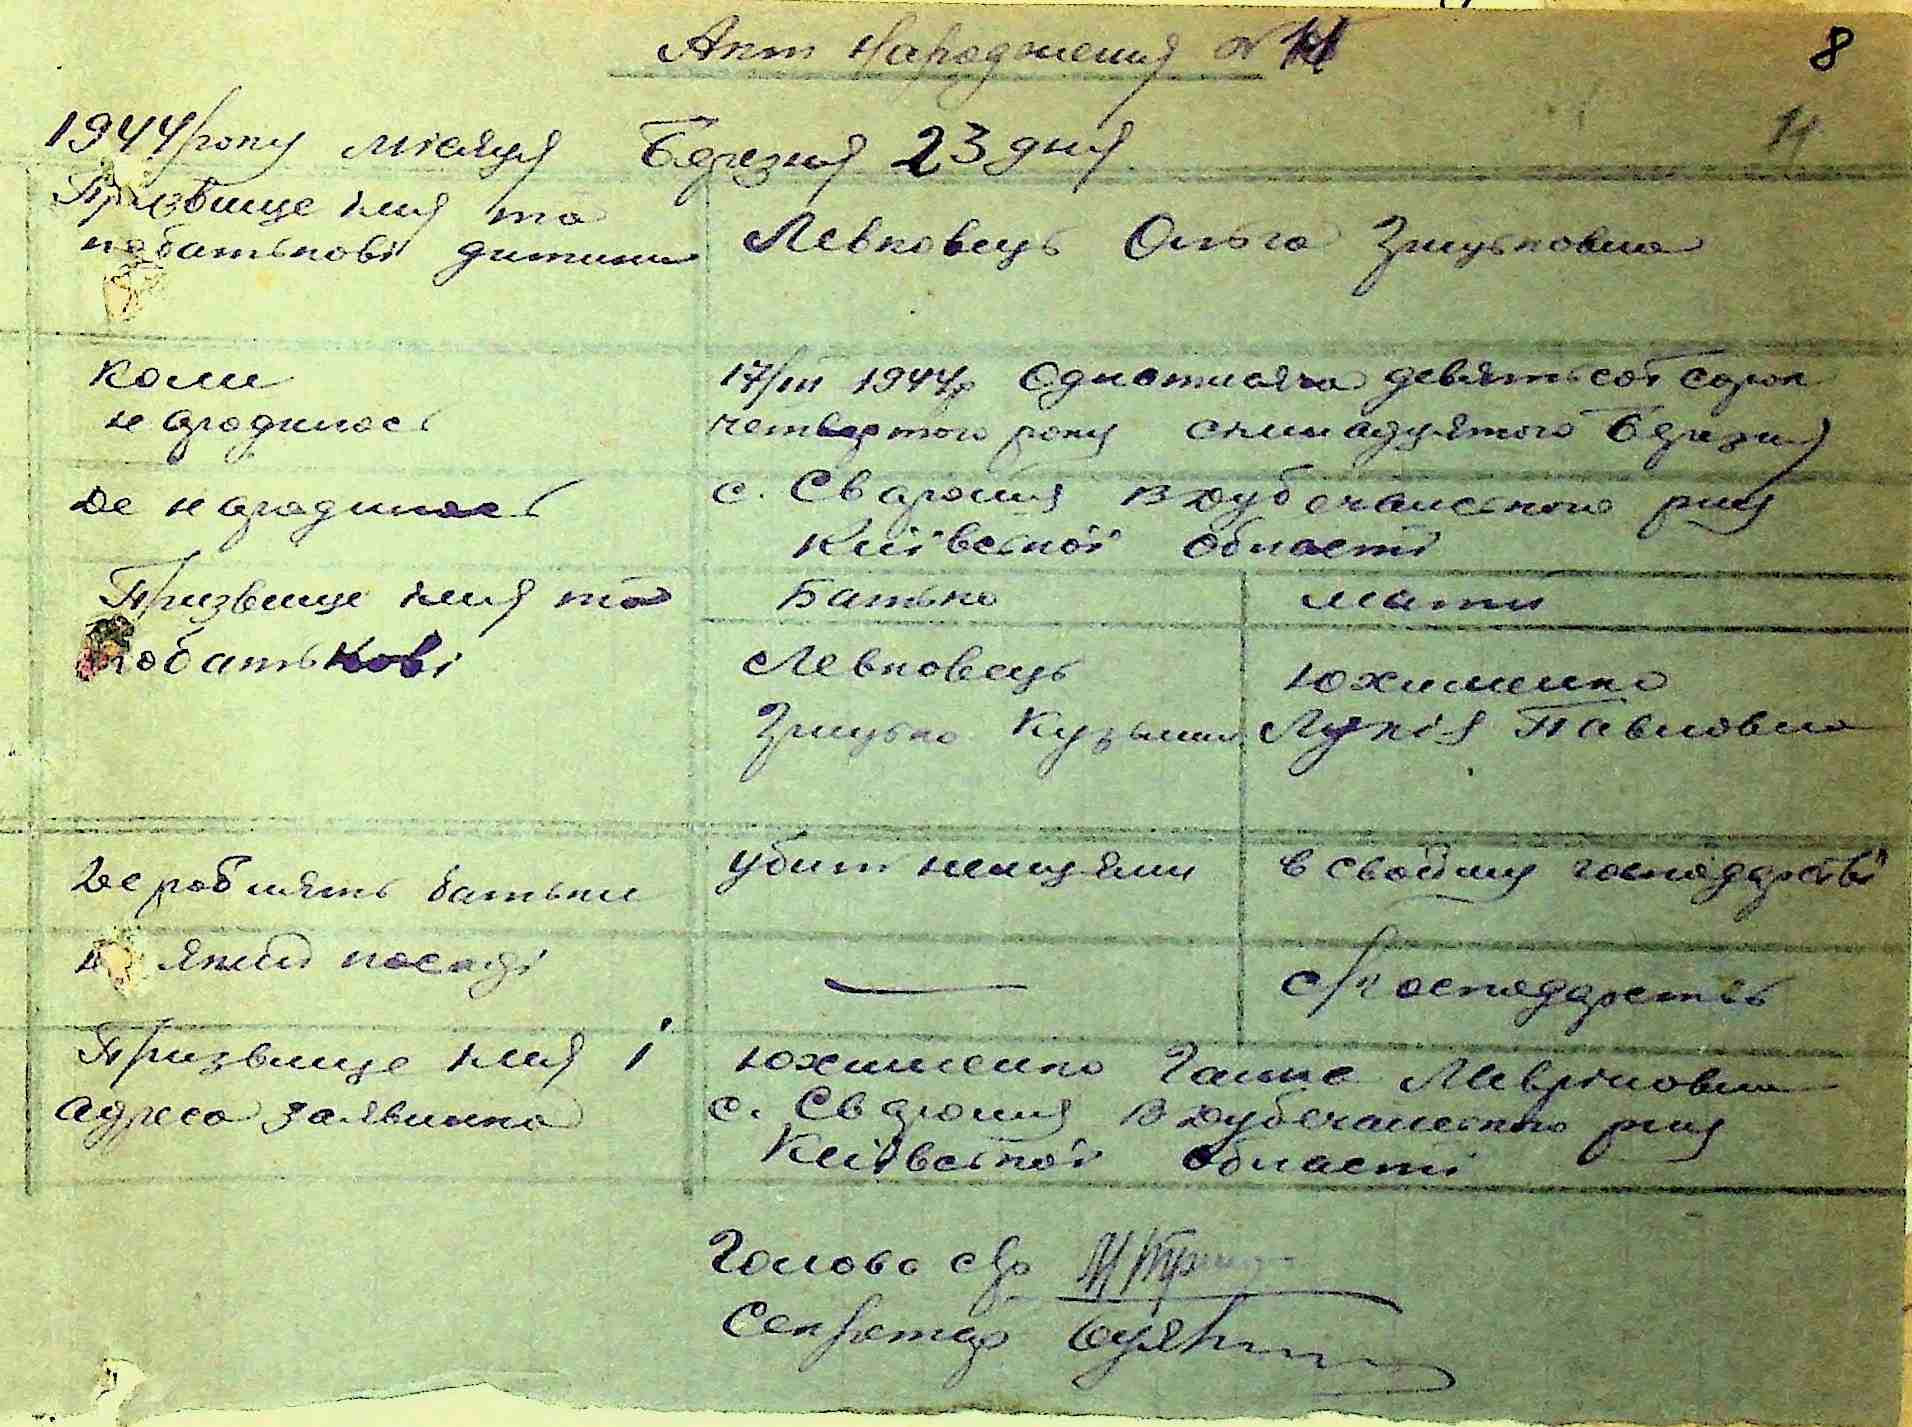 Акт народження №
8
11
1944 року місяця Березня 23 дня
Призвище імя та
по батькові дитини
Левковець Ольга Зицьковна
Коли
народилось
17/III 1944р Однотисяча девятьсот сорок
четвертого року сімнадцятого Березня
Де народилось
с. Свароння В Дубечанського р-ну
Київської області
Призвище імя та
побатькові
Батько
мати
Левковець
Зицько Кузьмич
Юхименко
Лукія Павловна
Де роблять батьки
убит немцями
в своїму господарстві
на якій посаді
с/господарств
Призвище імя і
адреса заявника
Юхименко Ганна Мавріковна
с. Свароння В Дубечанського р-ну
Київської області
Голова с/р
Секретар